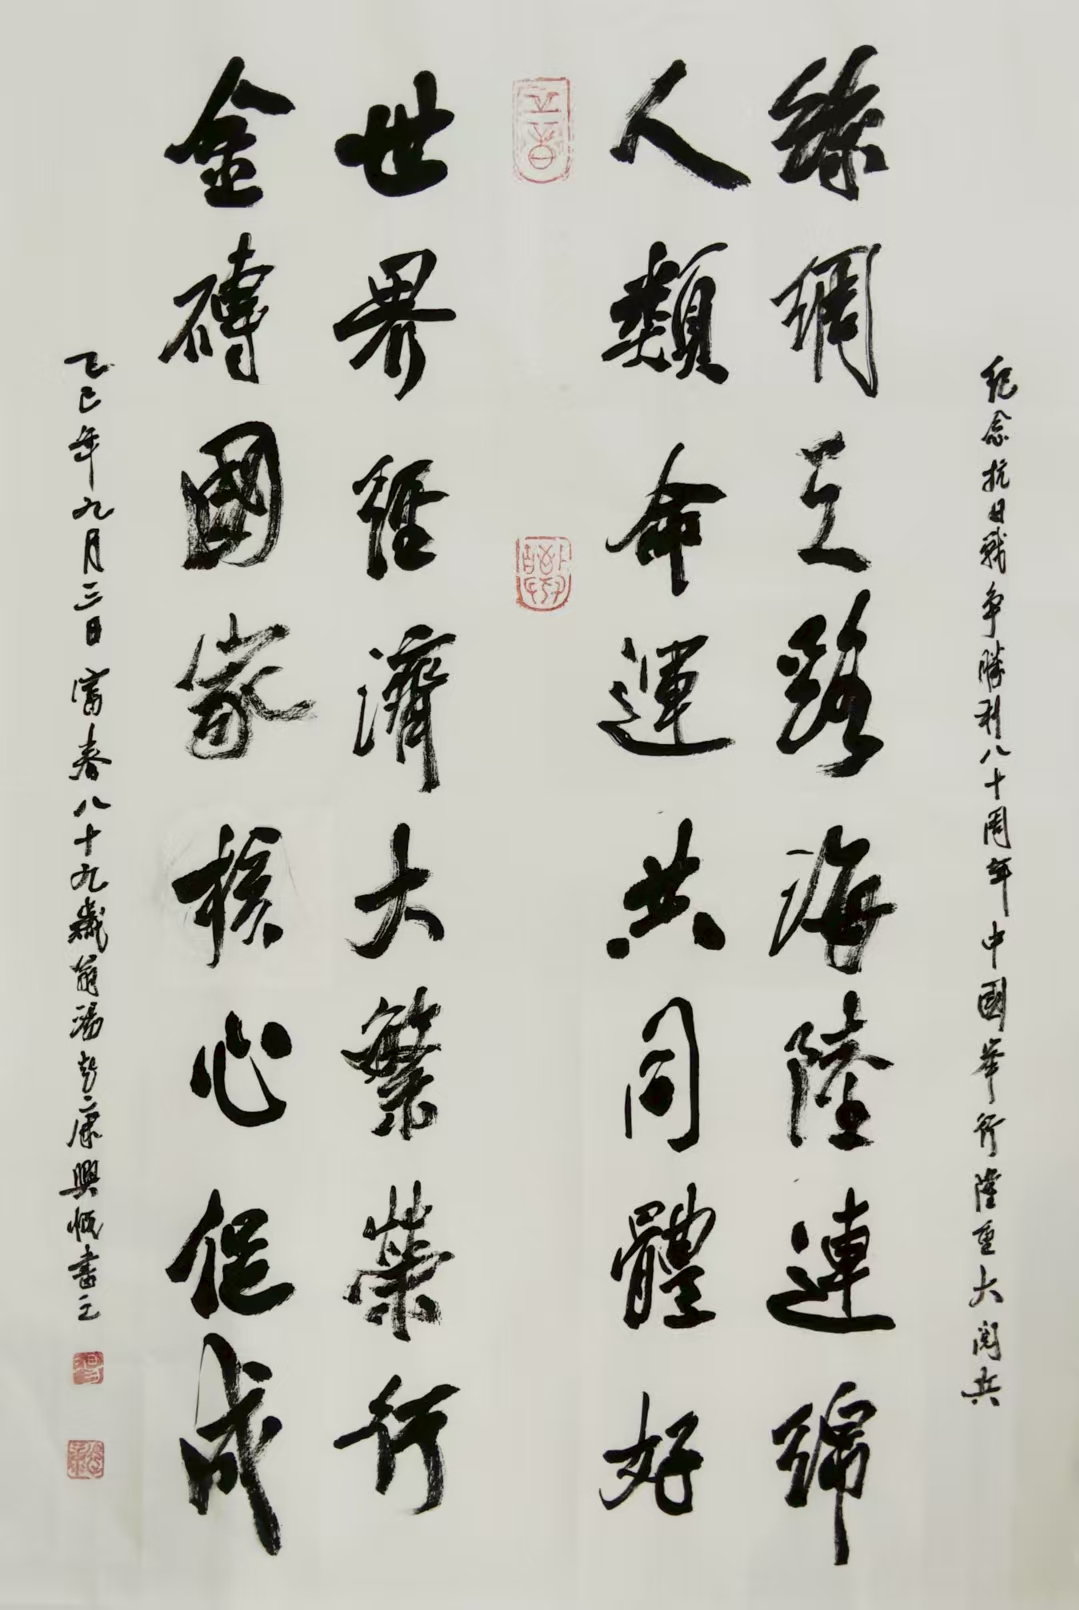 紀念抗日戰争勝利八十周年中國舉行隆重大阅兵
絲綢之路海陸連綿
人類命運共同體好
世界經濟大繁荣行
金磚國家核心促成
乙巳年九月三日富春八十九歲翁湯康興
書之